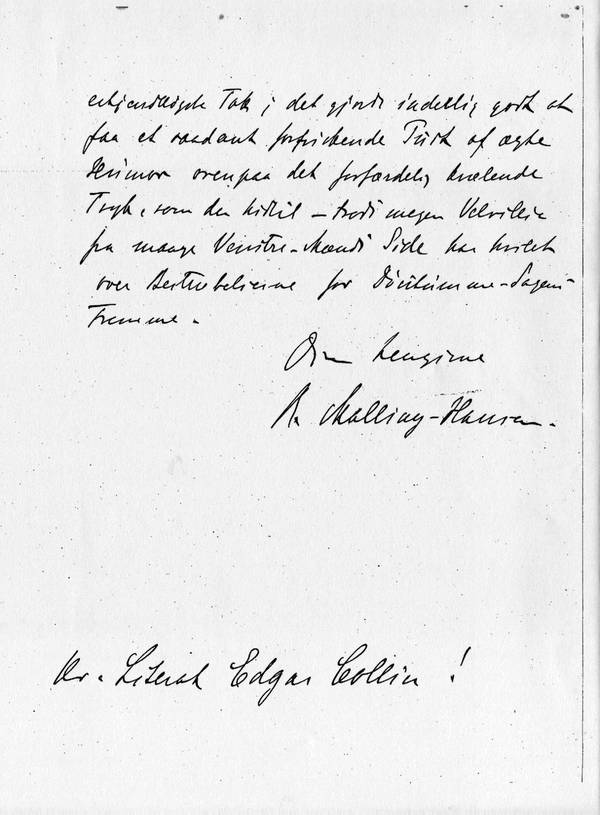 erkjendtligste Tak; det gjorde inderlig godt at
faa et saadant forfriskende Pust af ægte
Humor ovenpaa det forfærdelig kvælende
Tryk, som der hidtil – trods megen Velvilie
fra mange Venstre-Mænds Side har hvilet
over Bestræbelserne for Døvstumme-Sagens
Fremme.
Din hengivne
R. Malling-Hansen.
Hr. Literat Edgar Collin!